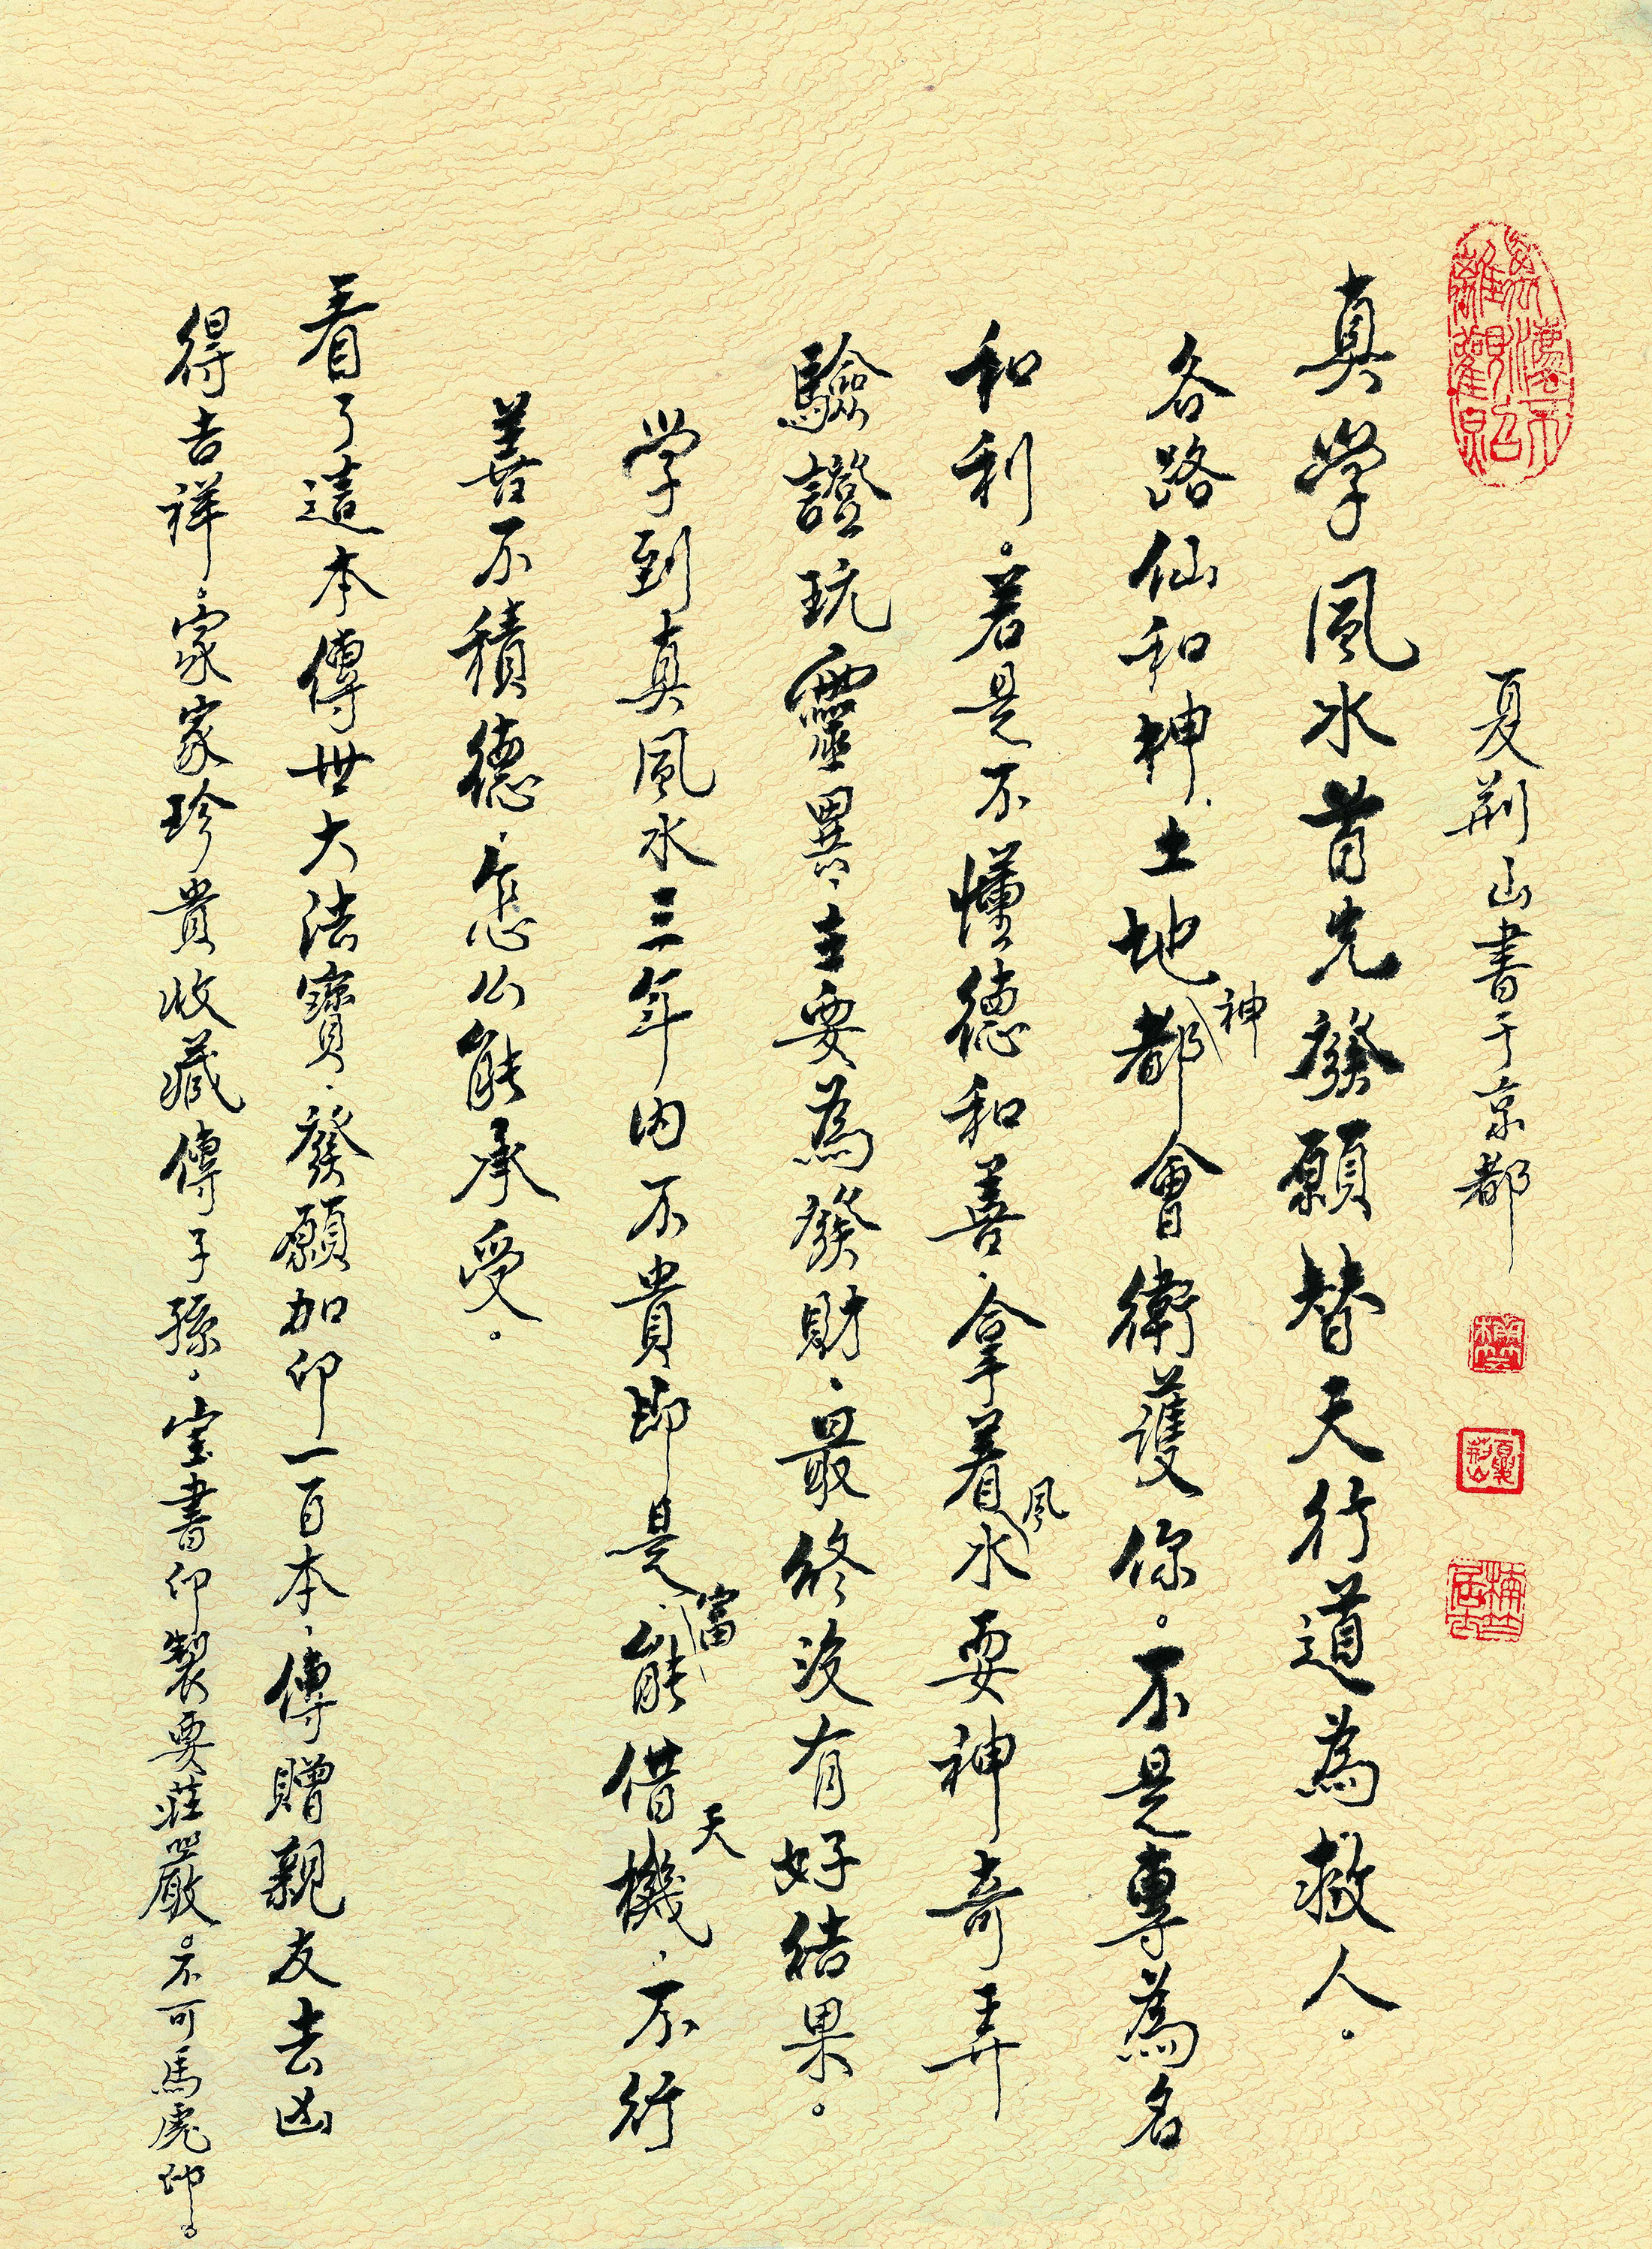 夏荆山書于京都
真學風水首先發願替天行道為救人。
各路仙和神、土地神都會衛護你。不是專為名
和利。若是不懂德和善、拿着風水耍神奇弄
驗證玩靈異、主要為發財、最終沒有好結果。
学到真風水三年内不貴即是富、能借天機、不行
善不積德、怎么能承受。
看了這本傳世大法寶、發願加印一百本、傳贈親友去凶
得吉祥。家家珍貴收藏傳子孫。宝書印製要莊嚴。不可馬虎印。